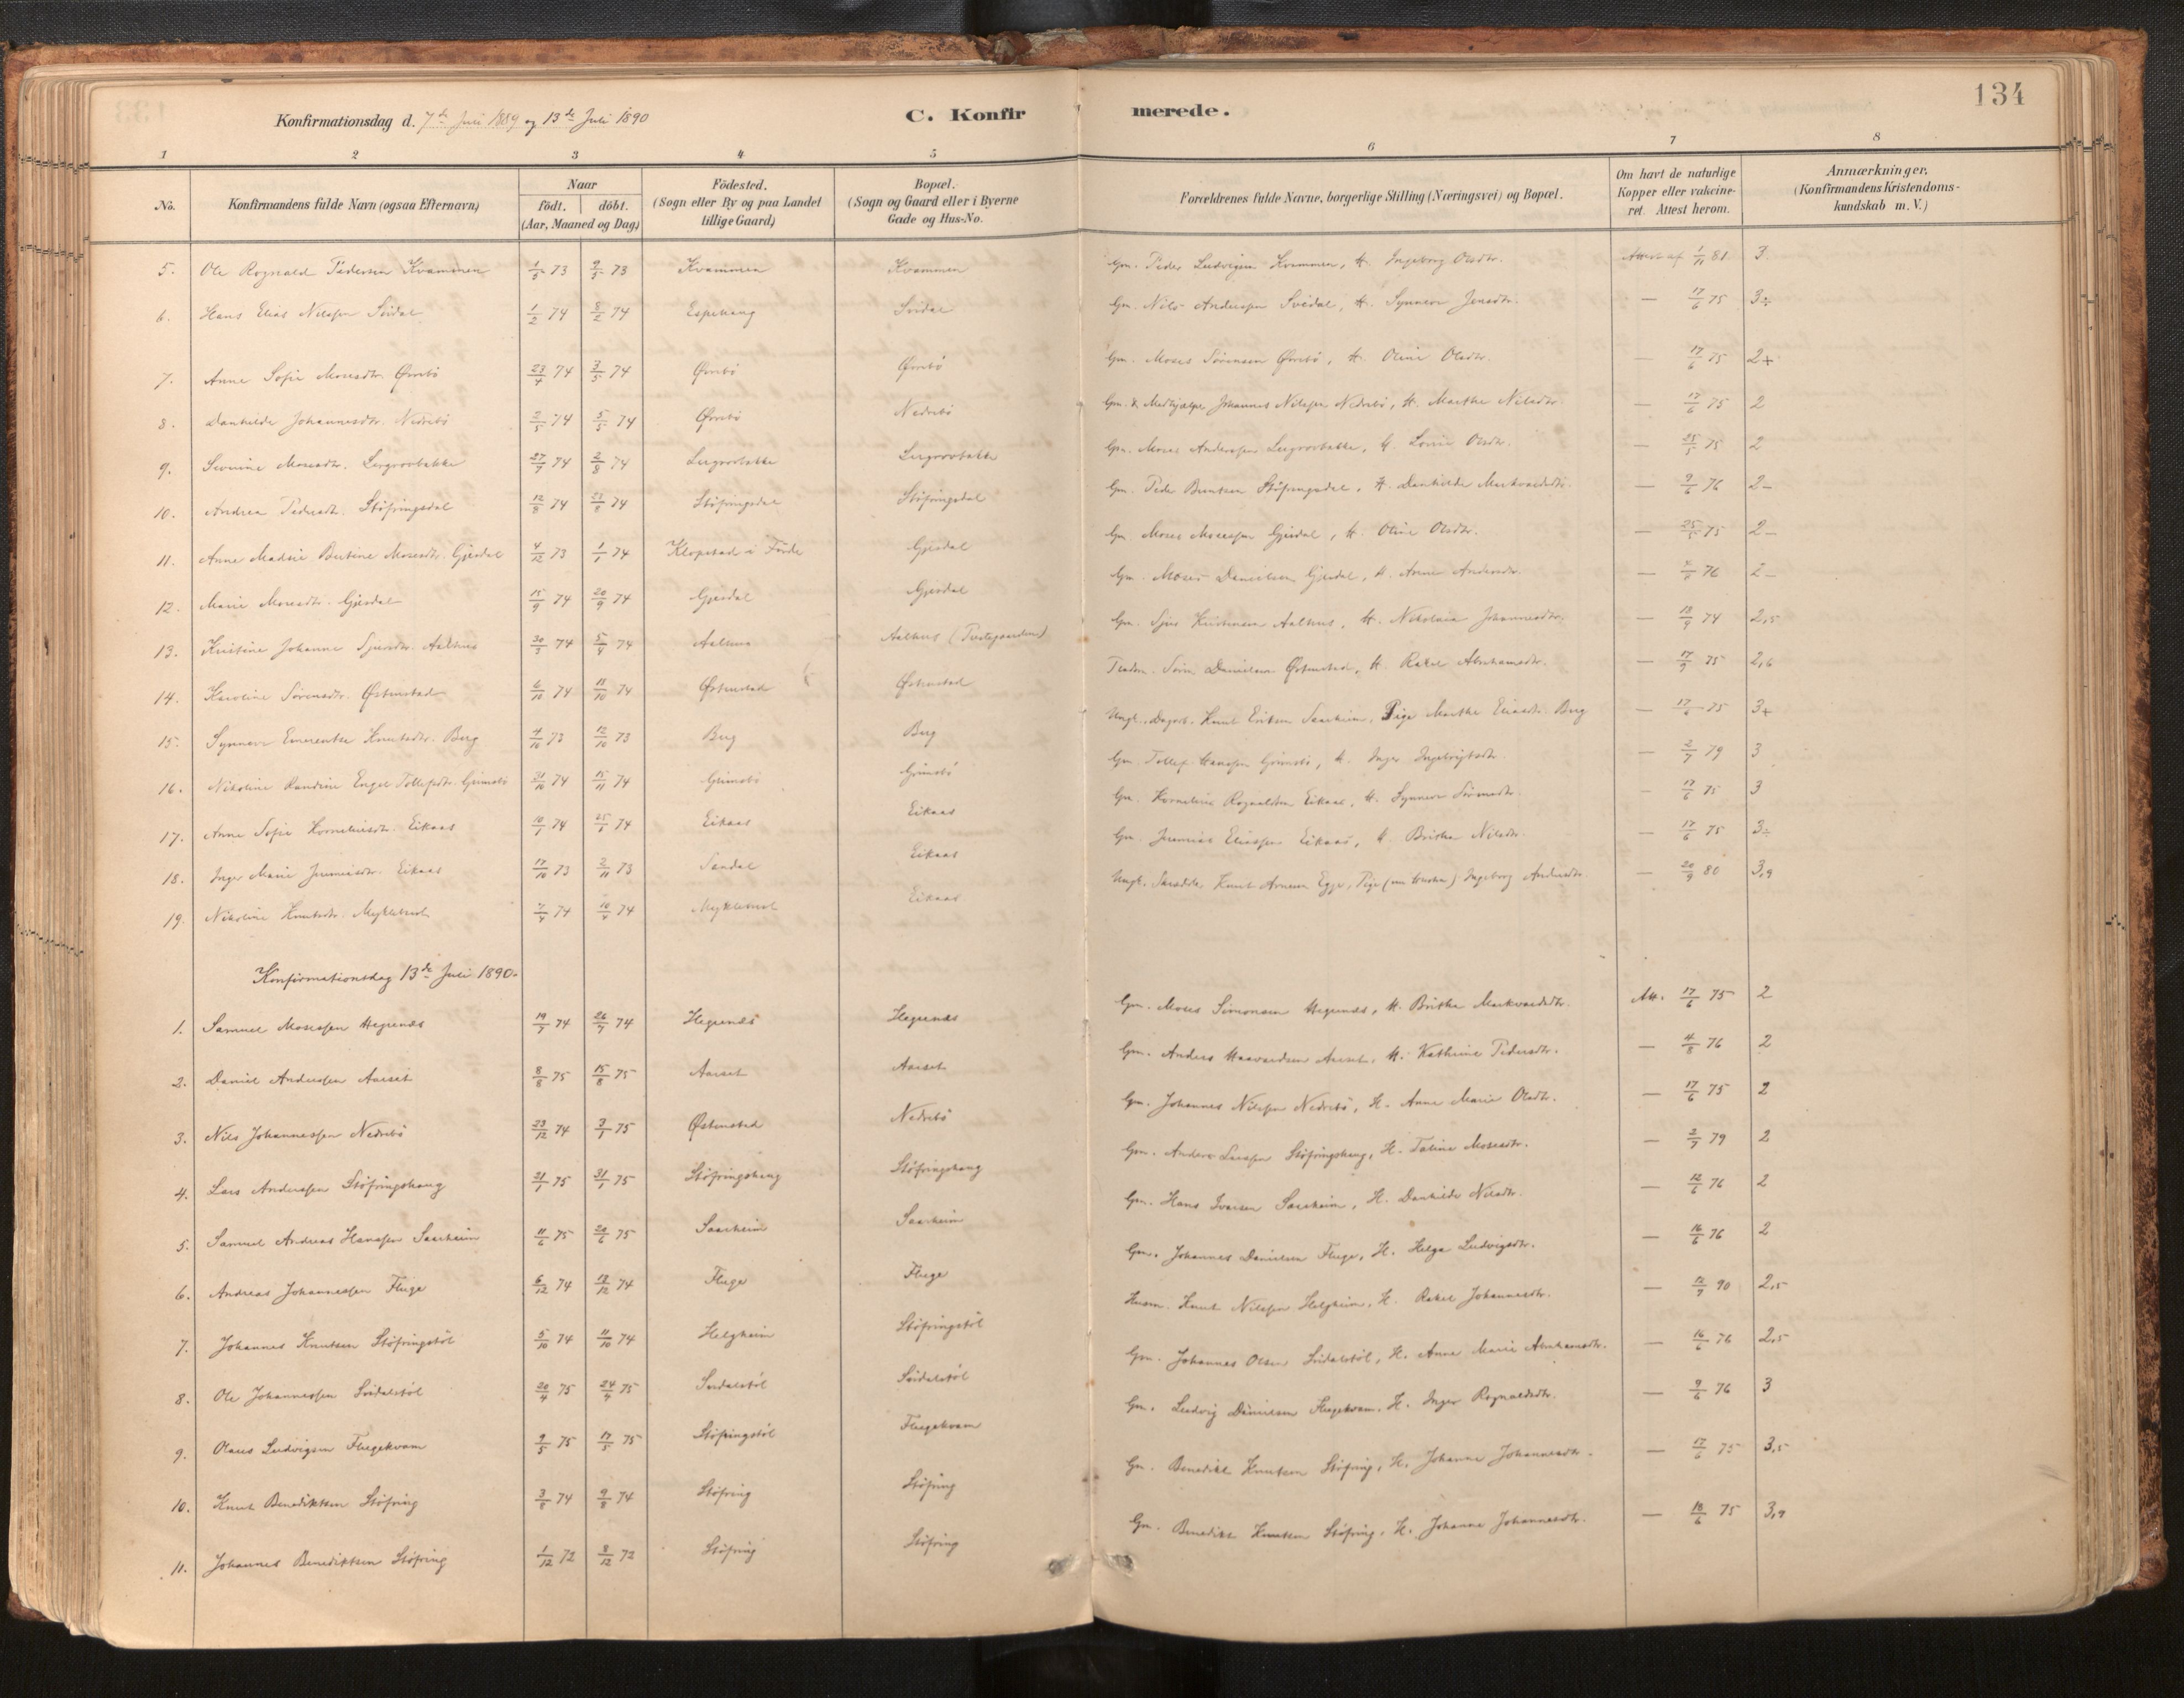 134
Konfirmationsdag d. 7de Juli 1889 og 13de Juli 1890 C. Konfirmerede.
1 2 3 4 5 6 7 8
No. Konfirmandens fulde Navn (ogsaa Efternavn) Naar födt. döbt. (Aar, Maaned og Dag) Födested. (Sogn eller By og paa Landet tillige Gaard) Bopæl. (Sogn og Gaard eller i Byerne Gade og Hus-No. Forældrenes fulde Navne, borgerlige Stilling (Næringsvei) og Bopæl. Om havt de naturlige Kopper eller vakcineret. Attest herom. Anmærkninger. (Konfirmandens Kristendomskundskab m. V.)
5. Ole Rognald Pedersen Kvammen 1/5 73 9/5 73 Kvammen Kvammen Gm. Peder Ludvigsen Kvammen, H. Ingeborg Olsdtr. Attest af 1/11 81 3
6. Hans Elias Nilssen Svidal 1/2 74 8/2 74 Espehaug Svidal Gm. Nils Anderssen Svidal, H. Synneve Jensdtr. — 17/6 75 3÷
7. Anne Sofie Mosesdtr. Øvrebö 23/4 74 3/5 74 Øvrebö Øvrebö Gm. Moses Sörensen Øvrebö, H. Oline Olsdtr. — 17/6 75 2+
8. Dankilde Johannesdtr. Nedrebö 2/5 74 5/5 74 Øvrebö Nedrebö Gm. & Medhjælper Johannes Nilssen Nedrebö, H. Marthe Nilsdtr. — 17/6 75 2
9. Severine Mosesdtr. Lergrovbakke 27/7 74 2/8 74 Lergrovbakke Lergrovbakke Gm. Moses Anderssen Lergrovbakke, H. Lovise Olsdtr. — 25/5 75 2
10. Andrea Pedersdtr. Stöfringsdal 12/8 74 23/8 74 Stöfringsdal Stöfringsdal Gm. Peder Bentsen Stöfringsdal, H. Dankilde Markvardsdtr. — 9/6 76 2-
11. Anne Madsie Bertine Mosesdtr. Gjesdal 4/12 73 1/1 74 Klopstad i Förde Gjesdal Gm. Moses Mosessen Gjesdal, H. Oline Olsdtr. — 25/5 75 2-
12. Marie Mosesdtr. Gjesdal 15/9 74 20/9 74 Gjesdal Gjesdal Gm. Moses Danielsen Gjesdal, H. Anne Andersdtr. — 76 2-
13. Kristine Johanne Sjursdtr. Aalhus 30/3 74 5/4 74 Aalhus Aalhus (Prestegaarden) Gm. Sjur Kristensen Aalhus, H. Nikolaia Johannesdtr. — 18/9 74 2,5
14. Karoline Sörensdtr. Østenstad 6/10 74 18/10 74 Østenstad Østenstad Sören Danielsen Østenstad, H. Rakel Abrahamsdtr. — 17/9 75 2,6
15. Synneve Emerentse Knutsdtr. Berg 4/10 73 12/10 73 Berg Berg Ungk. Dagarb. Knut Eriksen Saarheim, Pige Marthe Eliasdtr. Berg — 17/6 75 3+
16. Nikoline Randine Engel Tollefsdtr. Grimsbö 31/10 74 15/11 74 Grimsbö Grimsbö Gm. Tollef Hanssen Grimsbö, H. Inger Ingebrigtsdtr. — 2/7 79 3
17. Anne Sofie Korneliusdtr. Eikaas 10/1 74 25/1 74 Eikaas Eikaas Gm. Kornelius Rognaldsen Eikaas, H. Synneve Sörensdtr. — 17/6 75 3
18. Inger Marie Jeremiasdtr. Eikaas 17/10 73 2/11 73 Sandal Eikaas Gm. Jeremias Eliassen Eikaas, H. Brithe Nilsdtr. — 17/6 75 3÷
19. Nikoline Knutsdtr. Myklebust 7/4 74 10/4 74 Myklebust Eikaas Ungk. Knut Arnesen Egge, Pige (nu Hustru) Ingeborg Andersdtr. — 20/9 80 3,9
Konfirmationsdag 13de Juli 1890.
1. Samuel Mosessen Hegrenæs 19/7 74 26/7 74 Hegrenæs Hegrenæs Gm. Moses Simonsen Hegrenæs, H. Brithe Markvardsdtr. Att. 17/6 75 2
2. Daniel Anderssen Aarset 8/8 75 15/8 75 Aarset Aarset Gm. Anders Haavardsen Aarset, H. Kathrine Pedersdtr. — 4/8 76 2
3. Nils Johannessen Nedrebö 23/12 74 3/1 75 Østenstad Nedrebö Gm. Johannes Nilssen Nedrebö, H. Anne Marie Olsdtr. — 17/6 75 2
4. Lars Anderssen Stöfringshaug 21/1 75 31/1 75 Stöfringshaug Stöfringshaug Gm. Anders Larssen Stöfringshaug, H. Taline Mosesdtr. — 2/7 79 2
5. Samuel Andreas Hanssen Saarheim 11/6 75 20/6 75 Saarheim Saarheim Gm. Hans Ivarsen Saarheim, H. Dankilde Nilsdtr. — 12/6 76 2
6. Andreas Johannessen Fluge 6/12 74 13/12 74 Fluge Fluge Gm. Johannes Danielsen Fluge, H. Helga Ludvigsdtr. — 16/6 76 2
7. Johannes Knutsen Stöfringstöl 5/10 74 11/10 74 Helgheim Stöfringstöl Husm. Knut Nilssen Helgheim, H. Rakel Johannesdtr. — 12/7 90 2,5
8. Ole Johannessen Svidalstöl 20/4 75 24/4 75 Svidalstöl Svidalstöl Gm. Johannes Olsen Svidalstöl, H. Anne Marie Abrahamsdtr. — 16/6 76 2,5
9. Olaus Ludvigsen Flugekvam 9/5 75 17/5 75 Stöfringstöl Flugekvam Gm. Ludvig Danielsen Flugekvam, H. Inger Rognaldsdtr. — 9/6 76 3
10. Knut Benediktsen Stöfring 3/8 74 9/8 74 Stöfring Stöfring Gm. Benedikt Knutsen Stöfring, H. Johanne Johannesdtr. — 17/6 75 3,5
11. Johannes Benediktsen Stöfring 1/12 72 8/12 72 Stöfring Stöfring Gm. Benedikt Knutsen Stöfring, H. Johanne Johannesdtr. — 18/6 75 3,9